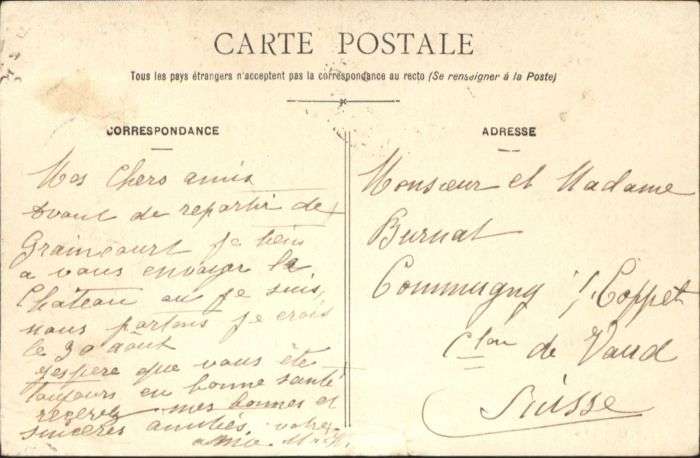 CARTE POSTALE
Tous les pays étrangers n'acceptent pas la correspondance au recto (Se renseigner à la Poste)
CORRESPONDANCE
Mes chers amis
Avant de repartir de
Graincourt je tiens
a vous envoyer le
Château ou je suis,
nous partons je crois
le 30 août
j'espere que vous ête
toujours en bonne santé
recevez mes bonnes et
sincères amitiés, votre
ADRESSE
Monsieur et Madame
Burnat
Commugny s/ Coppet
Cton de Vaud
Suisse